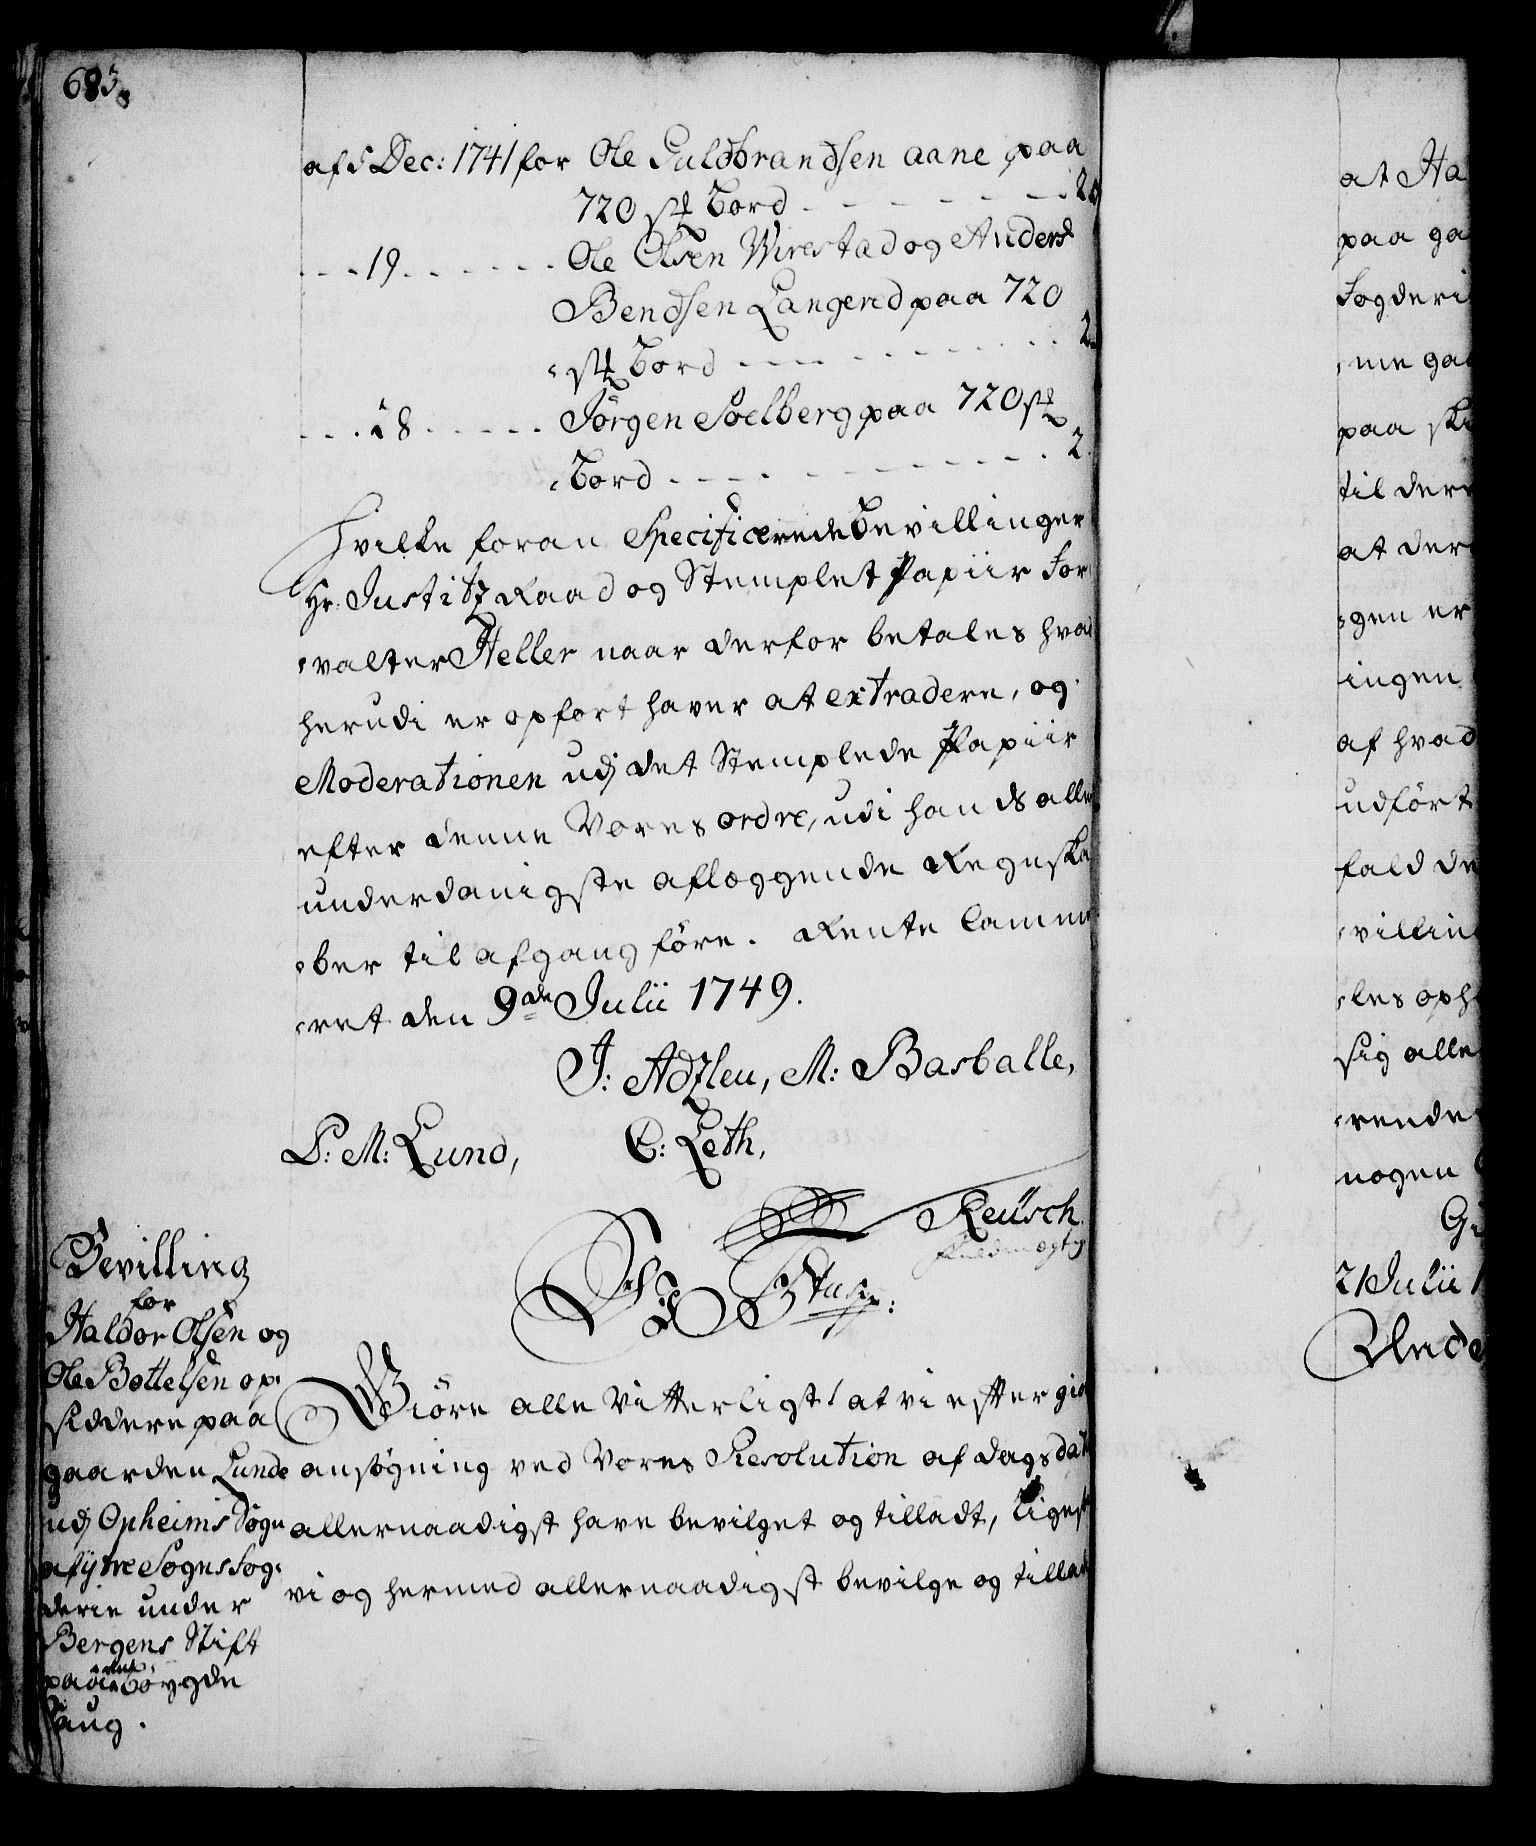 683.
af 5 Dec: 1741 for Ole Guldbrandsen aane paa
720 st Bord - - - - - - - 2
- - - 19 - - - - - - Ole Olsen Wirestad og Anders
Bendsen Langered paa 720
st Bord - - - - - - - - 2
- - - 28 - - - - - Jörgen Soelberg paa 720 st
Bord - - - - - - - - - 2
Hvilke foran Specificerede Bevillinger
Hr. Justitz Raad og Stemplet Papiir For
valter Heller naar derfor betales hvad
herudi er opført haver at extradere, og
Moderationen udj det Stemplede Papiir
efter denne Vores ordre, udi hands aller
underdanigste aflæggende Regnska
ber til afgang føre. Rente Camme
ret den 9de Julii 1749.
J: Adzleu, M: Basballe,
P: M: Lund, C: Leth,
Reüsch
Fuldmægtig
Bevilling
for
Haldor Olsen og
Ole Bottelsen op
siddere paa
gaarden Lunde
udj Opheims Sogn
af ytre Sogns fog
derie under
Bergens Stift
paa een bøygde
Saug.
Giöre alle vitterligt! at vi efter gio
ansøgning ved Vores Resolution af dags dat
allernaadigst have bevilget og tilladt, ligesaa
vi og hermed allernaadigst bevilge og tillade
at Ha
paa ga
Fogderi
me gaa
paa sk
til der
at der
gen er
ingen
af hvad
udført
fald de
villin
les oph
sig alle
rende
nogen
Gi
21 Julii 1
Unde